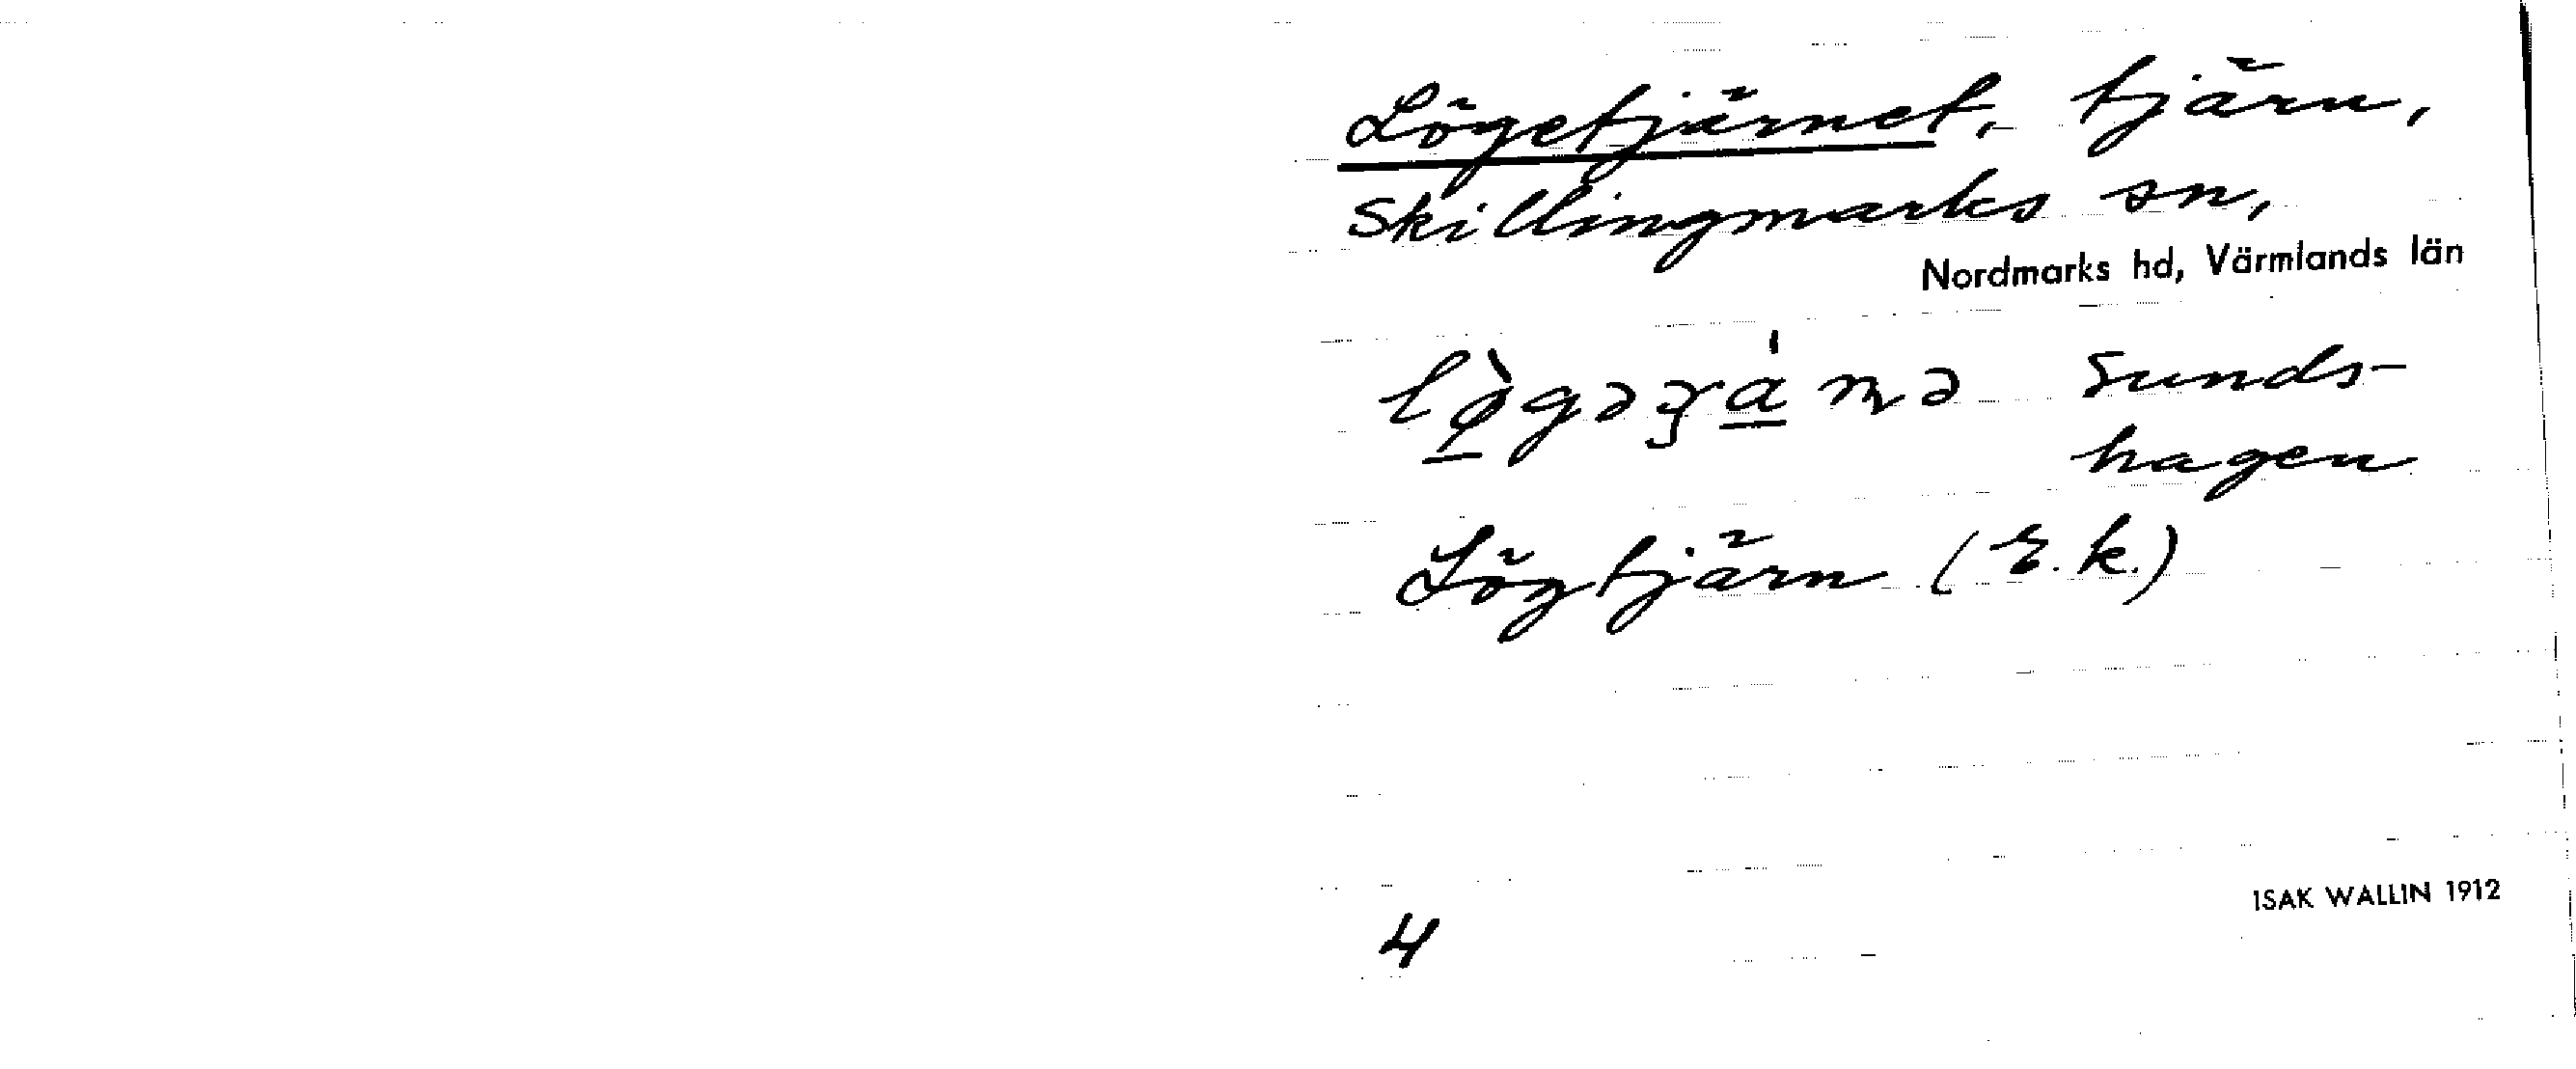 Lögetjärnet, tjärn,
Skillingmarks sn,
Nordmarks hd, Värmlands län
Sunds-
hagen
Lögtjärn (E.k.)
ISAK WALLIN 1912
4